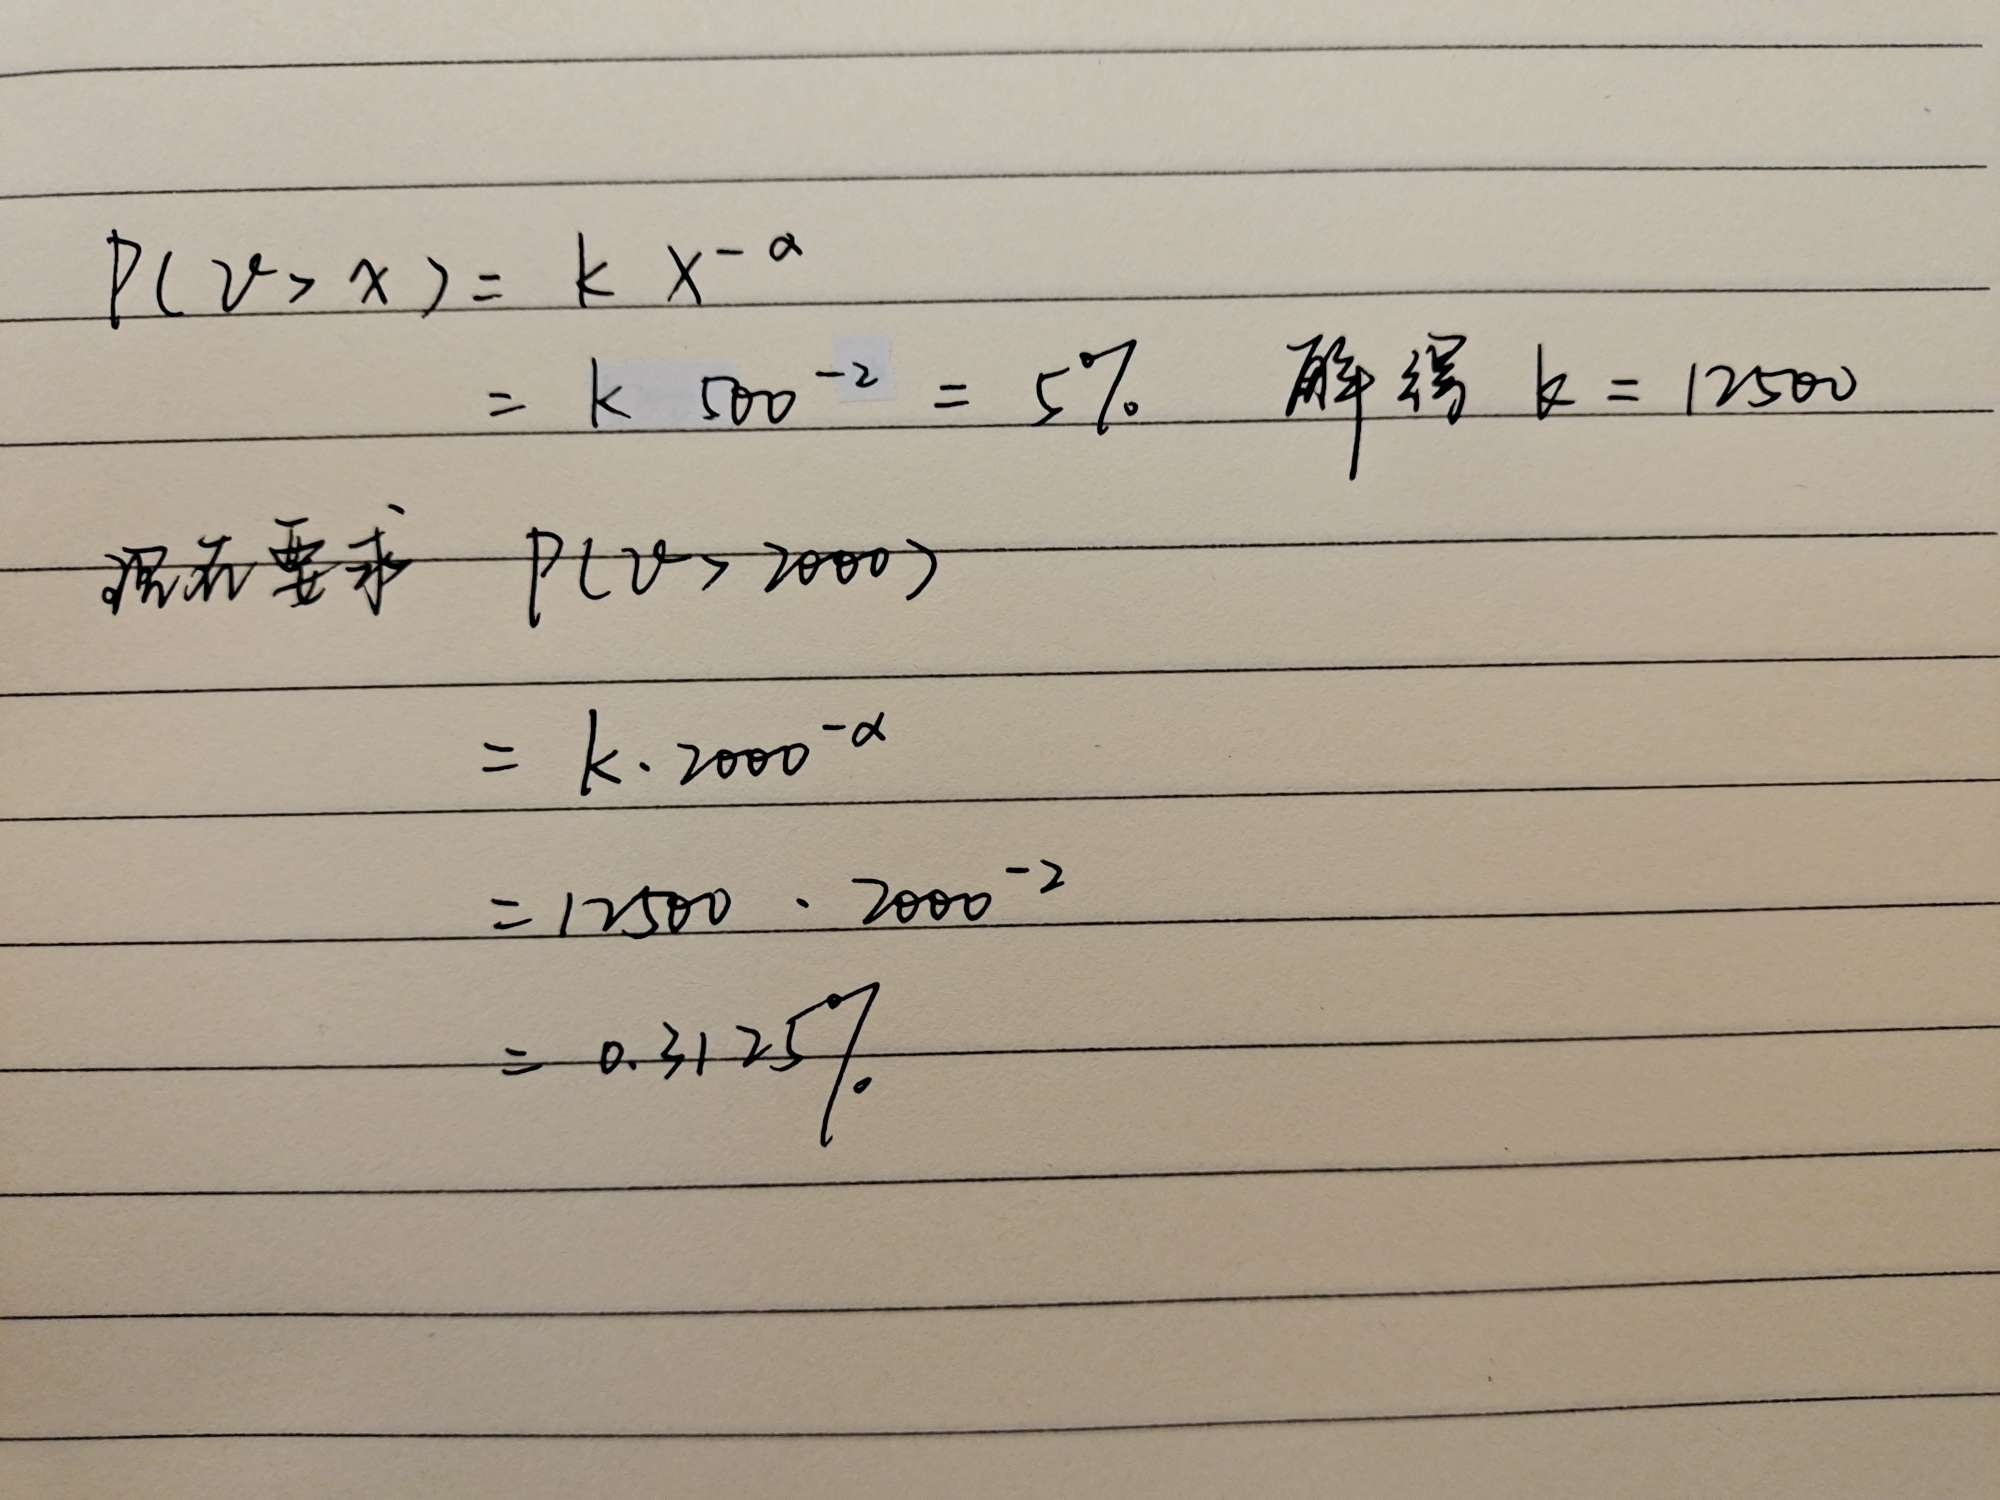 P(v > x) = k x^{-α}
= k 500^{-2} = 5% 解得 k = 12500
现在要求 P(v > 2000)
= k · 2000^{-α}
= 12500 · 2000^{-2}
= 0.3125%